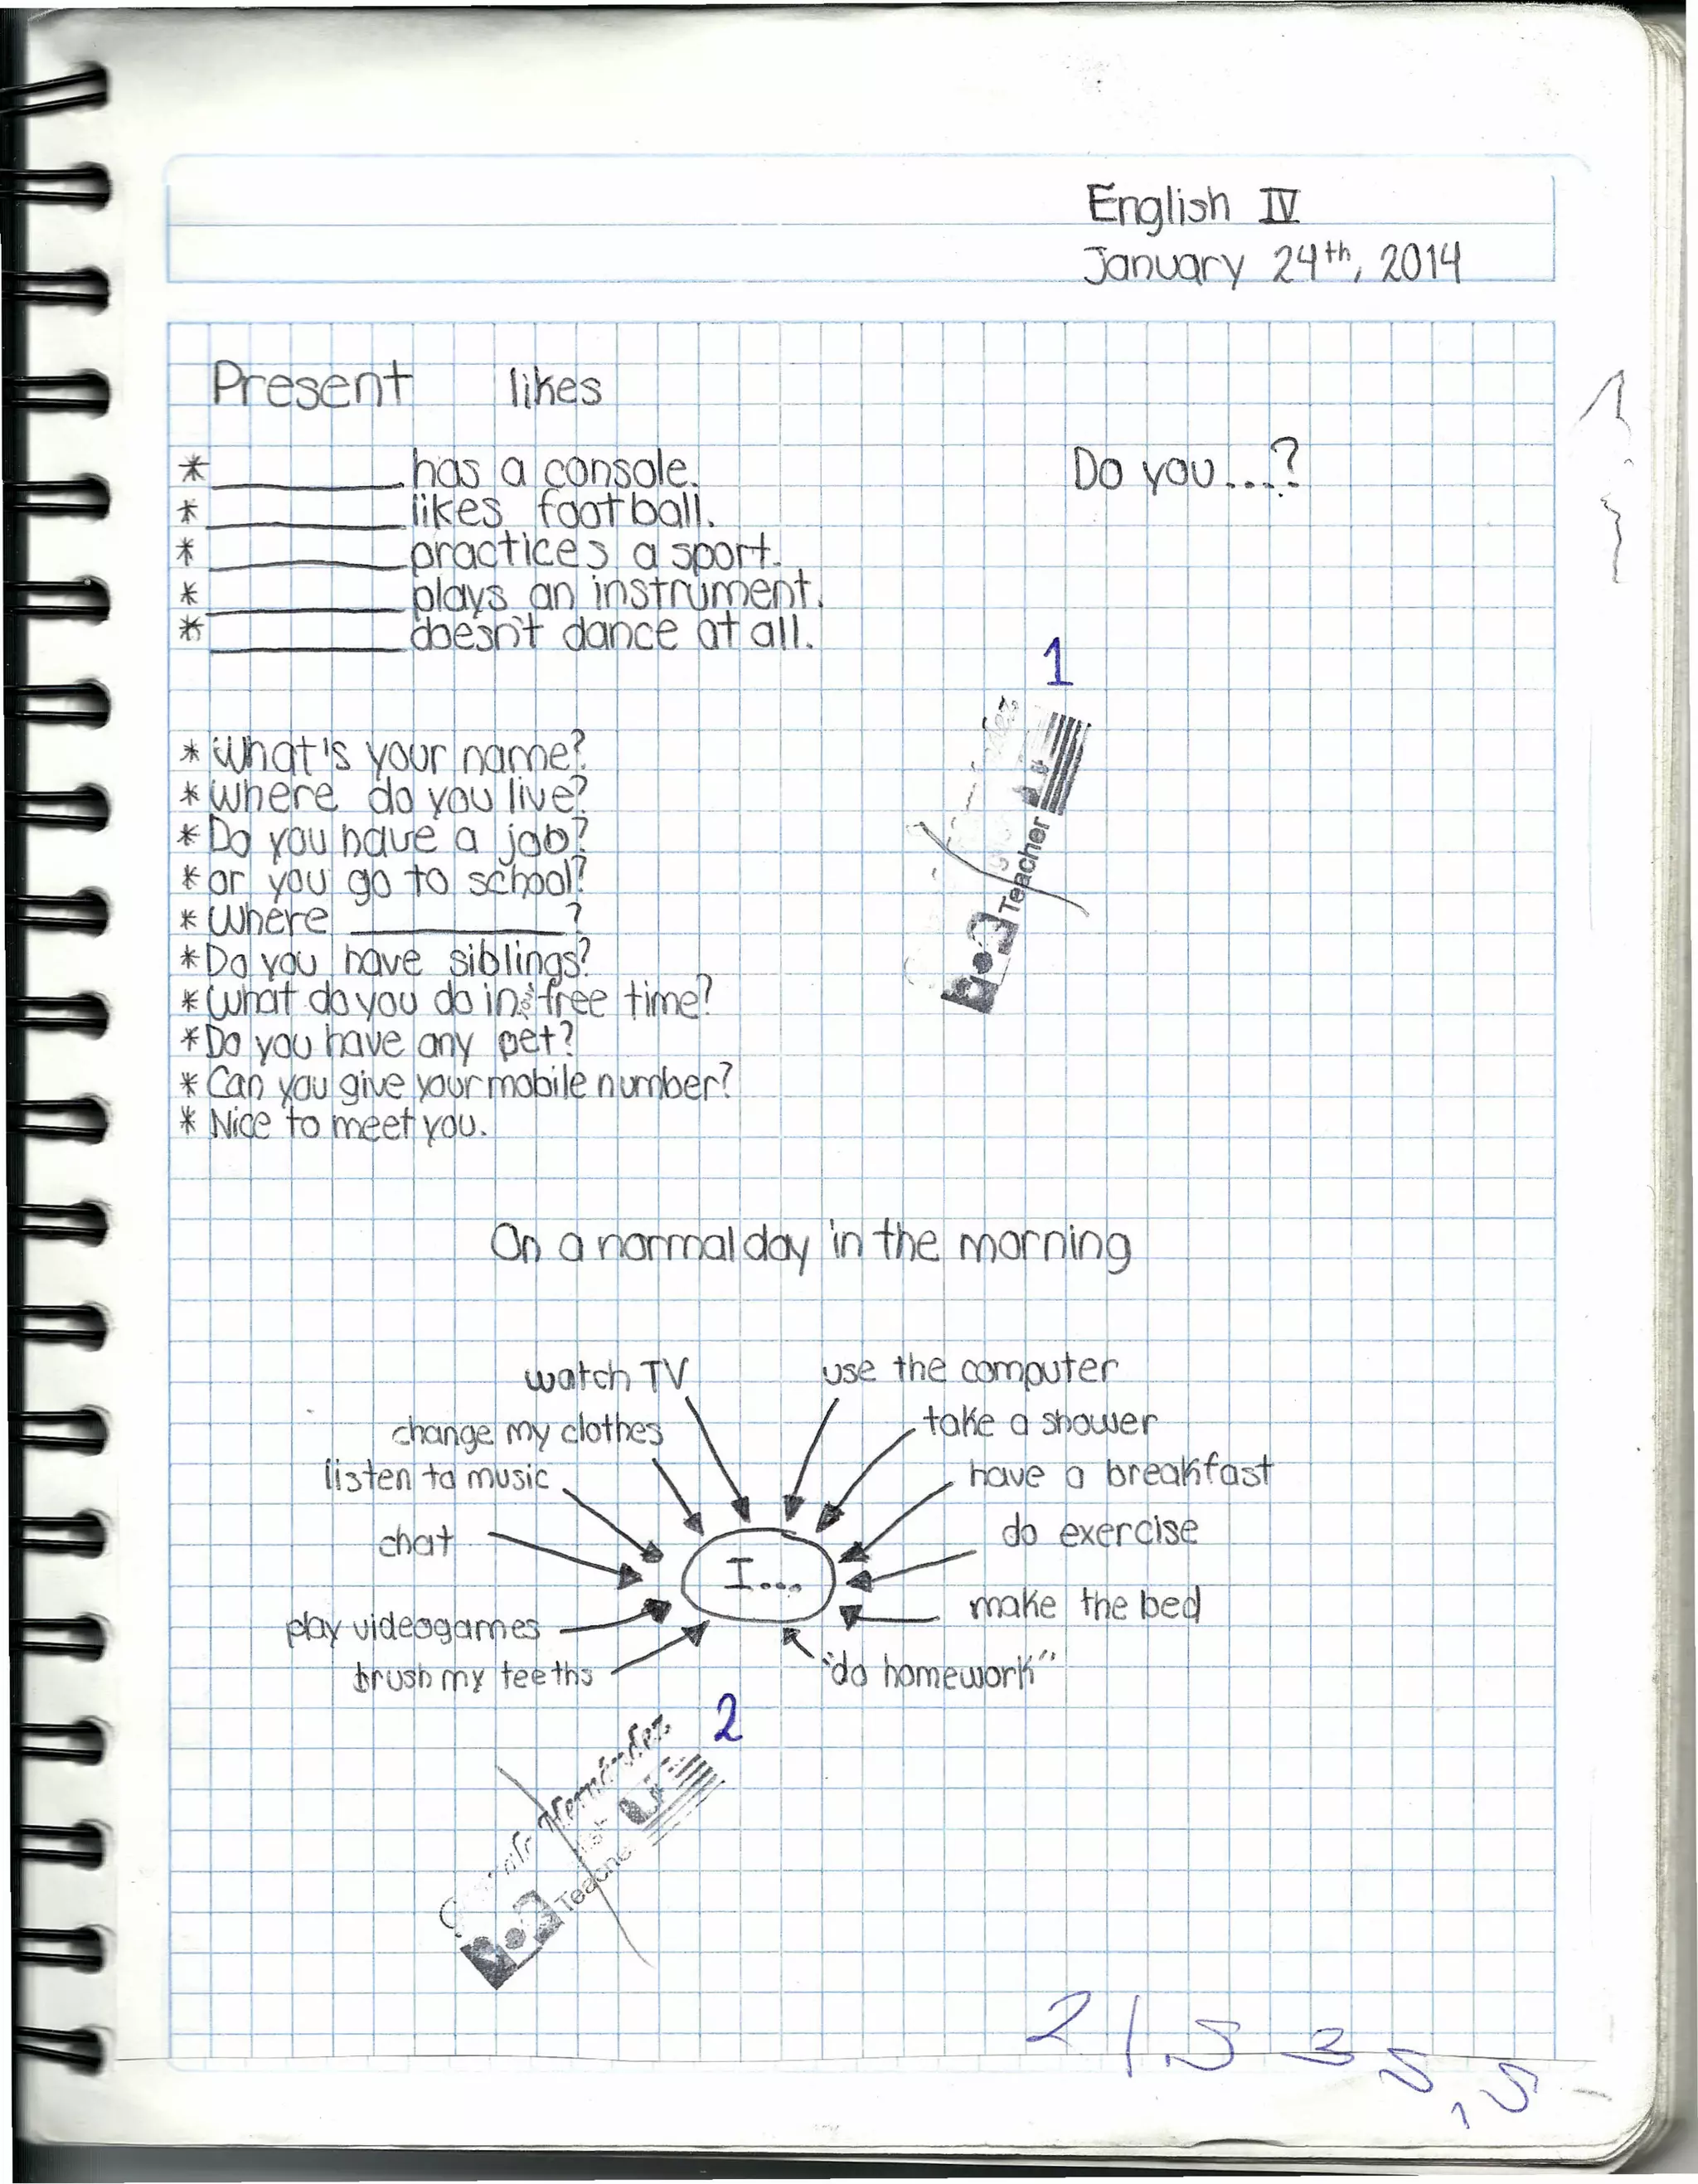 English IV
January 24th, 2014
Present likes
* ________ has a console.
Do you...?
* ________ likes football.
* ________ practices a sport.
* ________ plays an instrument.
* ________ doesn't dance at all.
1
Teacher
* What's your name?
* Where do you live?
* Do you have a job?
* or you go to school?
* Where ________?
* Do you have siblings?
* What do you do in free time?
* Do you have any pet?
* Can you give your mobile number?
* Nice to meet you.
On a normal day in the morning
watch TV
use the computer
change my clothes
take a shower
listen to music
have a breakfast
chat
do exercise
I...
play videogames
make the bed
brush my teeths
"do homework"
2
Hernández
Teacher